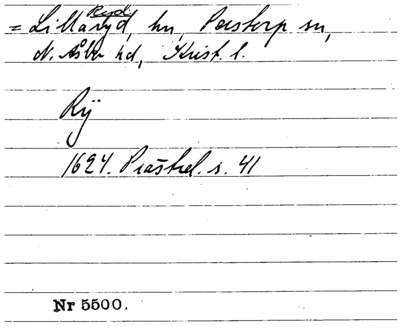 = Lillaryd, hn, Perstorp sn,
Ryd
N. Åsbo hd, Krist. l.
Rÿ
1624. Prästrel. s. 41
Nr 5500.